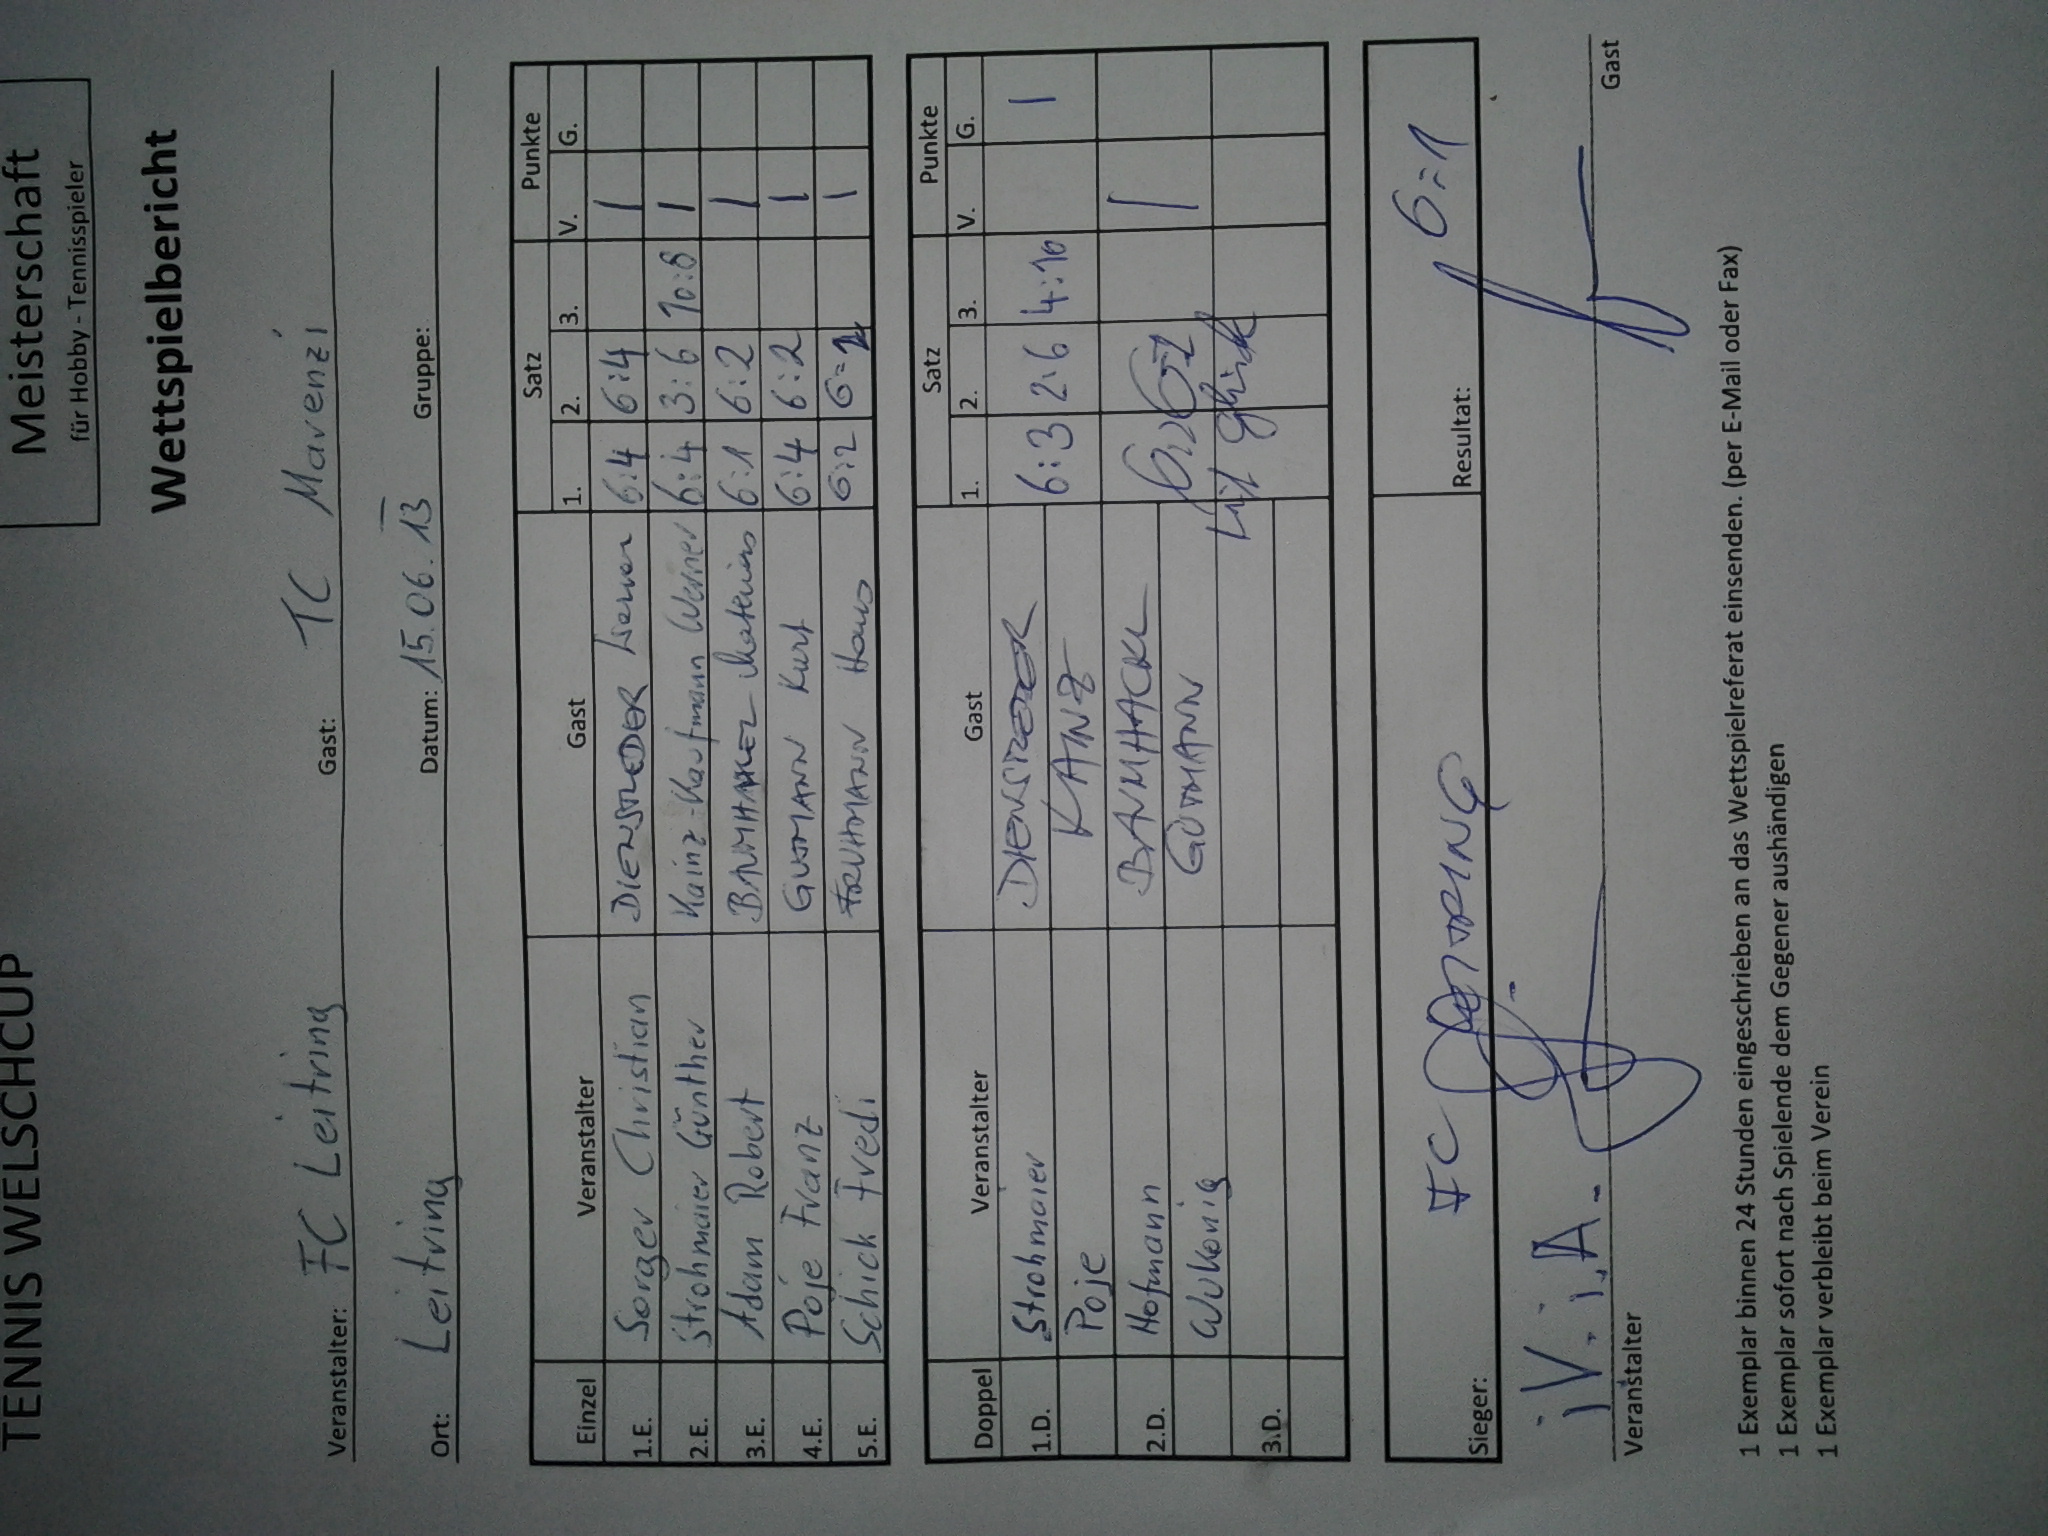 TENNIS WELSCHCUP
Meisterschaft
für Hobby - Tennisspieler
Wettspielbericht
Veranstalter: FC Leitring Gast: TC Mavenzi
Ort: Leitring Datum: 15.06.13 Gruppe:
Einzel Veranstalter Gast Satz Punkte
1. 2. 3. V. G.
1.E. Sorger Christian DIENSTLEDER 6:4 6:4 1
2.E. Strohmaier Günther Kainz-Kaufmann Werner 6:4 3:6 10:8 1
3.E. Adam Robert 6:1 6:2 1
4.E. Poje Franz GUTMANN Kurt 6:4 6:2 1
5.E. Schick Fredi FRUHMANN Hans 6:2 1
Doppel Veranstalter Gast Satz Punkte
1. 2. 3. V. G.
1.D. Strohmaier 6:3 2:6 4:10 1
Poje KAINZ
2.D. Hofmann BAUMHACKL 1
Wukonig GUTMANN
3.D.
Sieger: FC Resultat: 6:1
i.V. i.A.
Veranstalter Gast
1 Exemplar binnen 24 Stunden eingeschrieben an das Wettspielreferat einsenden. (per E-Mail oder Fax)
1 Exemplar sofort nach Spielende dem Gegener aushändigen
1 Exemplar verbleibt beim Verein